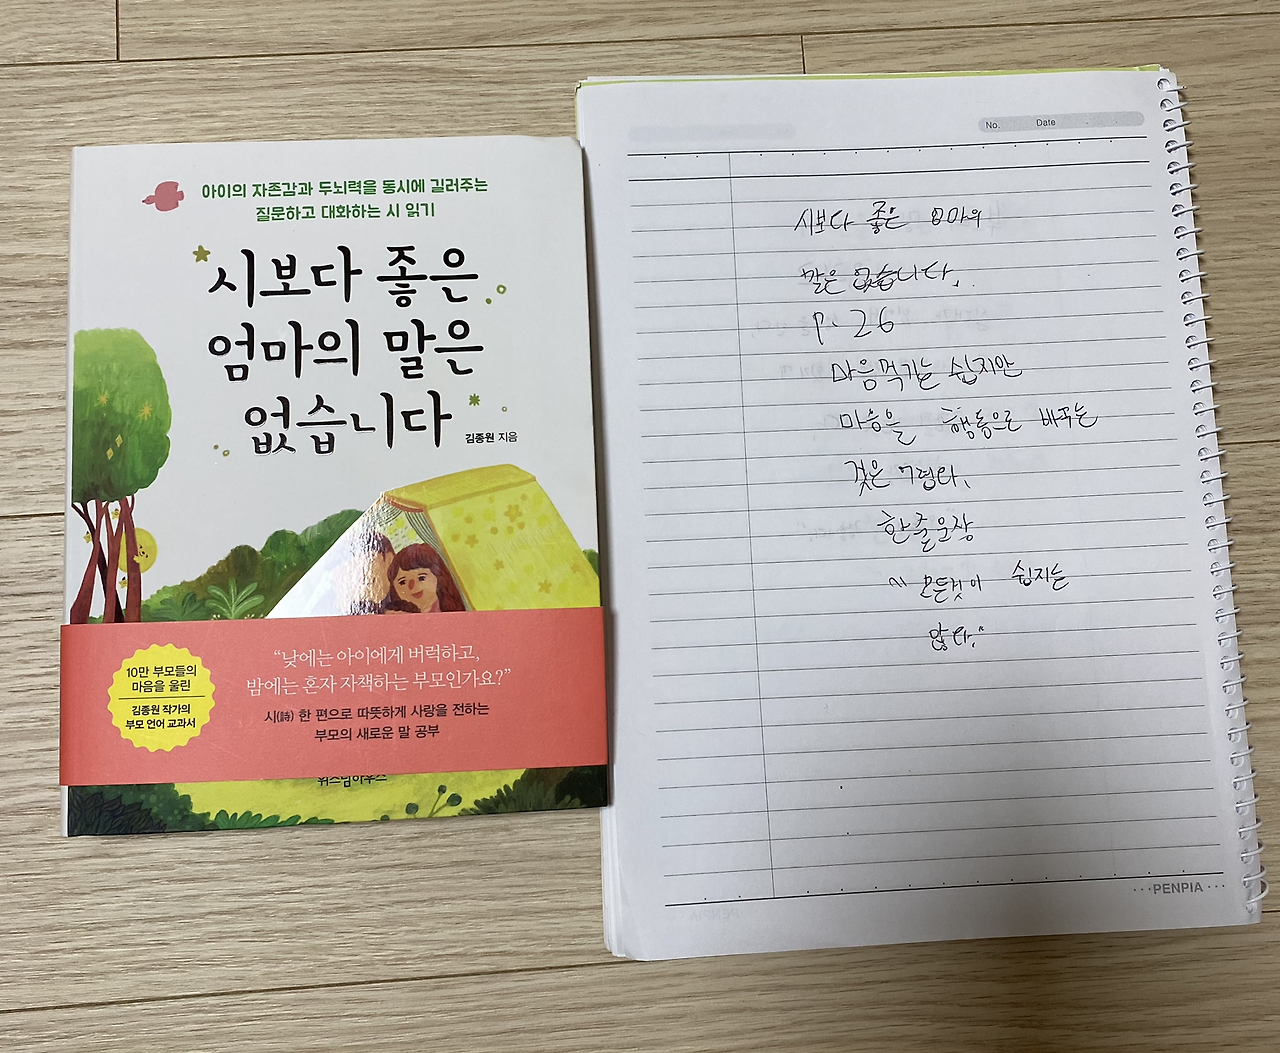 아이의 자존감과 두뇌력을 동시에 길러주는
질문하고 대화하는 시 읽기
시보다 좋은
엄마의 말은
없습니다
김종원 지음
10만 부모들의
마음을 울린
김종원 작가의
부모 언어 교과서
“낮에는 아이에게 버럭하고,
밤에는 혼자 자책하는 부모인가요?”
시(詩) 한 편으로 따뜻하게 사랑을 전하는
부모의 새로운 말 공부
위즈덤하우스
No. Date
시보다 좋은 엄마의
말은 없습니다.
P. 26
마음먹기는 쉽지만
마음을 행동으로 바꾸는
것은 어렵다.
한줄문장
"모든것이 쉽지는
않다."
PENPIA